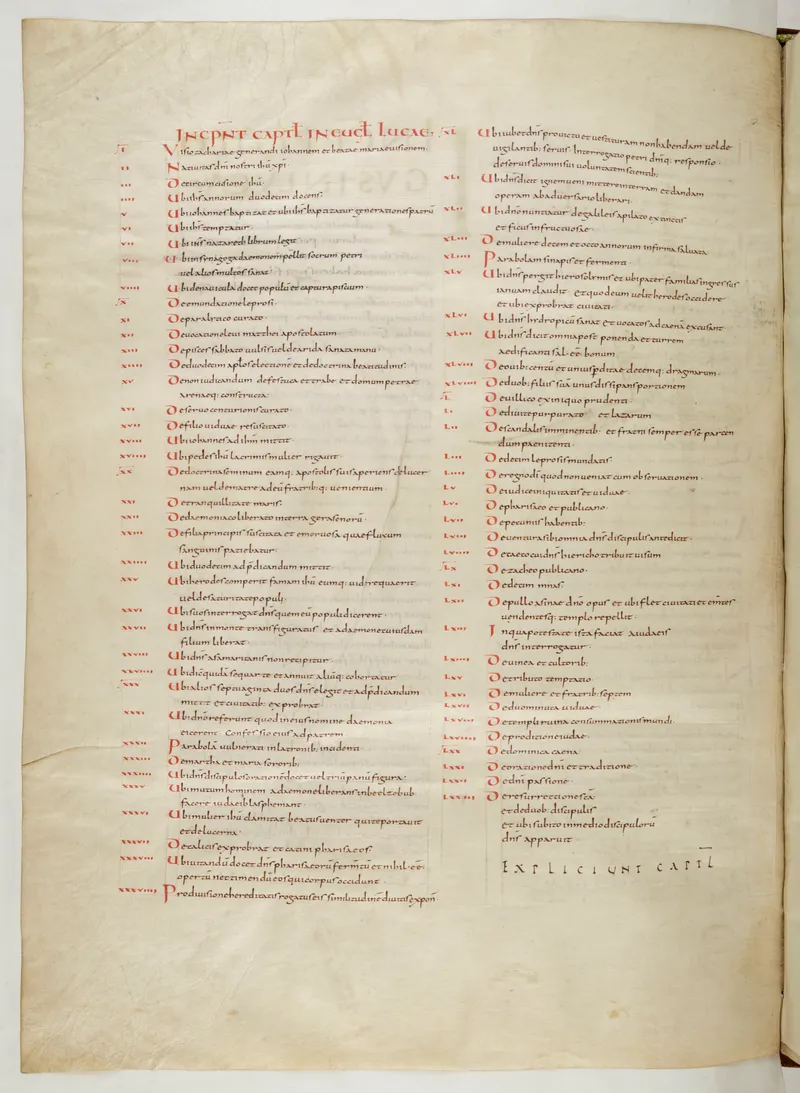 INCPNT CAPTL IN EUGL LUCAE.
I Visio zachariae generandi iohannem et beatae mariae uisionem.
II Natiuitas dni nostri ihu xpi
III De circumcisione ihu.
IIII Ubi ihs annorum duodecim docens.
V Ubi iohannes baptizat et ubi ihs baptizatur generationes patru
VI Ubi ihs temptatur.
VII Ubi ihs nazareth librum legit
VIII Ubi in synagoga daemonem pellit socrum petri
uel alios multos sanat.
VIIII Ubi de nauicula docet populu et captura piscium.
X De emundatione leprosi.
XI De paralytico curato.
XII De uocatione leui matthei apostolatum
XIII De spicis sabbato uulsis uel de arida sanata manu.
XIIII De duodecim aplos electione et de doctrina beatitudinis.
XV De non iudicandum de festuca et trabe et domum petrae
arenaeq: constructa.
XVI De seruo centurionis curato.
XVII De filio uiduae resuscitato.
XVIII Ubi iohannes ad ihm mittit
XVIIII Ubi pedes ihu lacrimis mulier rigauit.
XX De doctrina seminum eamq: apostolis suis aperiens de lucer
nam uel de matre ad eu fratribq: uenientium.
XXI De tranquillitate maris.
XXII De daemoniaco liberato in terra gerasenoru.
XXIII De filia principis suscitata et emorousa quae fluxum
sanguinis patiebatur.
XXIIII Ubi duodecim ad pdicandum mittit.
XXV Ubi herodes comperit famam ihu eumq: uidere quaerit
uel de saturitate populi.
XXVI Ubi suos interrogat dns quem eu populi dicerent.
XXVII Ubi dns in monte transfiguratus et a daemone cuiusdam
filium liberat.
XXVIII Ubi dns a samaritanis non recipitur.
XXVIIII Ubi dic quida sequar te et annuit aliuq: cohortatur
XXX Ubi alios septuaginta duos dns elegit et ad pdicandum
mittit et ciuitatib: exprobrat.
XXXI Ubi dno referunt quod in eius nomine daemonia
eicerent. Confessio eius ad patrem
XXXII Parabola uulnerati in latronib: incidenti
XXXIII De martha et maria sororib:
XXXIIII Ubi dns discipulos oratione docet uel triu panu figura.
XXXV Ubi mutum hominem a daemone liberans in beelzebub
facere iudaei blasphemant.
XXXVI Ubi mulier ihu clamitat beatus uenter qui te portauit
et de lucerna.
XXXVII De calicis exprobrat et catini pharisaeos.
XXXVIII Ubi uitandu docet dns pharisaeoru fermtu et nihil ee
opertu nec timendu eos qui corpus occidunt
XXXVIIII Pro diuisione hereditatis rogatus eis similitudine diuitis expon.
XL Ubi iubet dns pro uictu et uestituram non habendam uel de
uigilantib: seruis. Interrogatio petri dniq: responsio.
de seruis dominisui uoluntatem scientib:
XLI Ubi dns dicit ignem ueni mittere in terram et dandam
operam ab aduersario liberari.
XLII Ubi dno nuntiatur de galileis a pilato extinctis
et ficus infructuosae.
XLIII De muliere decem et octo annorum infirma saluata.
XLIIII Parabolam sinapis et fermenti.
XLV Ubi dns pergit hierosolymis et ubi pater familias ingressus
ianuam claudit et quod eum uelit herodes occidere
et ubi exprobrat ciuitati.
XLVI Ubi dns hydropicu sanat et uocatos ad caena excusant
XLVII Ubi dns dicit omnia post ponenda et turrem
aedificanti sal ee bonum.
XLVIII De ouib: centu et unius pditae decemq: dragmarum.
XLVIIII De duob: filiis sua unius dissipans portionem
L De uillico ex iniquo prudenti.
LI De diuite purpurato et lazarum
LII De scandalis imminentib: et fratri semper esse parcen
dum paenitenti.
LIII De decem leprosis mundatis
LIIII De regno di quod non ueniat cum obseruationem.
LV De iudice iniquitatis et uiduae.
LVI De pharisaeo et publicano.
LVII De pecuniis habentib:
LVIII De uenturas ibi omnia dns discipulis antedicit.
LVIIII De caeco cui dns hiericho tribuit uisum
LX De zacheo publicano.
LXI De decem mnas.
LXII De pullo asinae dno opus et ubi flet ciuitati et emtes
uendentesq: templo repellit.
LXIII In qua potestate ista faciat a iudaeis
dns interrogatur.
LXIIII De uinea et cultorib:
LXV De tributo temptatio.
LXVI De muliere et fratrib: septem
LXVII De duo minuta uiduae.
LXVIII De templi ruina consummationis mundi.
LXVIIII De proditione iudae.
LXX De dominica caena
LXXI De oratione dni et traditione.
LXXII De dni passione.
LXXIII De resurrectione sca
et de duob: discipulis
et ubi subito in medio discipuloru
dns apparuit.
EXPLICIUNT CAPTL